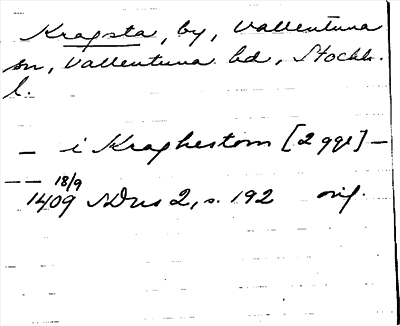 Kragsta, by, Vallentuna
sn, Vallentuna hd, Stockh.
l.
— i Kraghestom [2 ggr] —
— — 18/9
1409 SDns 2, s. 192 orig.